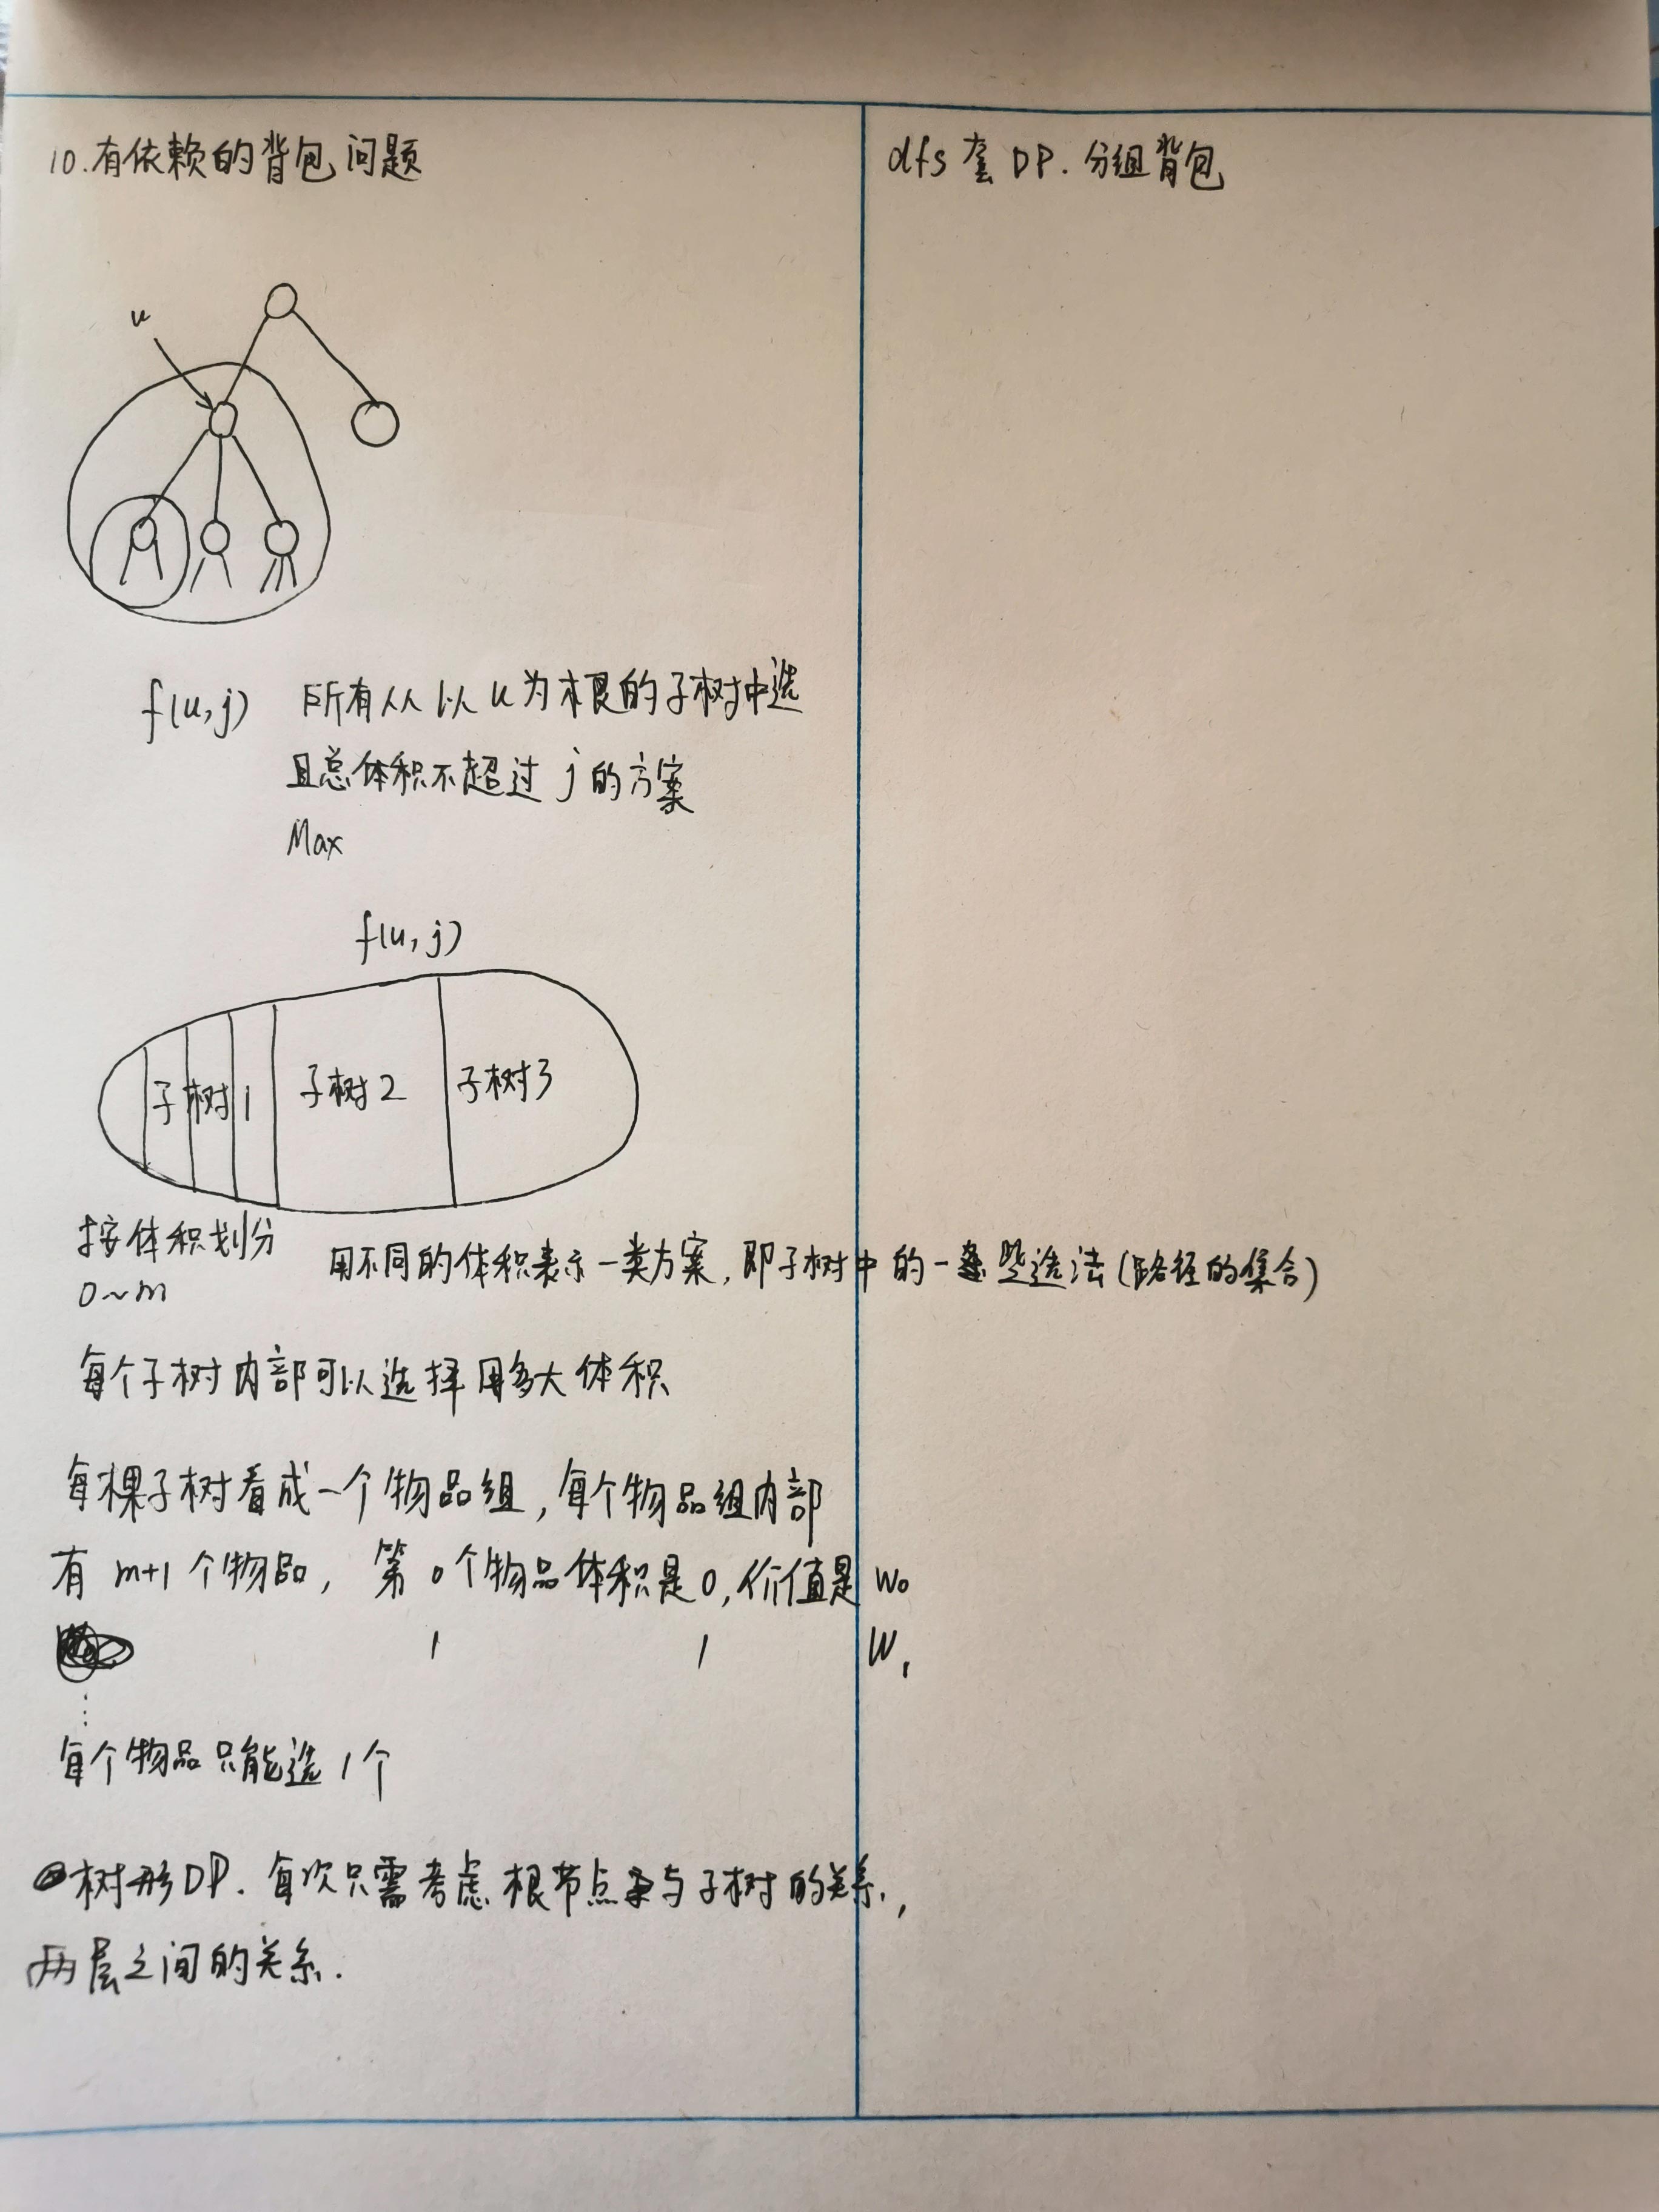 10.有依赖的背包问题
dfs套DP.分组背包
u
f(u,j) 所有从以u为根的子树中选
且总体积不超过j的方案
Max
f(u,j)
子树1 子树2 子树3
按体积划分
0~m
用不同的体积表示一类方案,即子树中的一些选法(路径的集合)
每个子树内部可以选择用多大体积
每棵子树看成一个物品组,每个物品组内部
有m+1个物品,第0个物品体积是0,价值是W0
1 1 W1
⋮
每个物品只能选1个
树形DP.每次只需考虑根节点与子树的关系,
两层之间的关系.